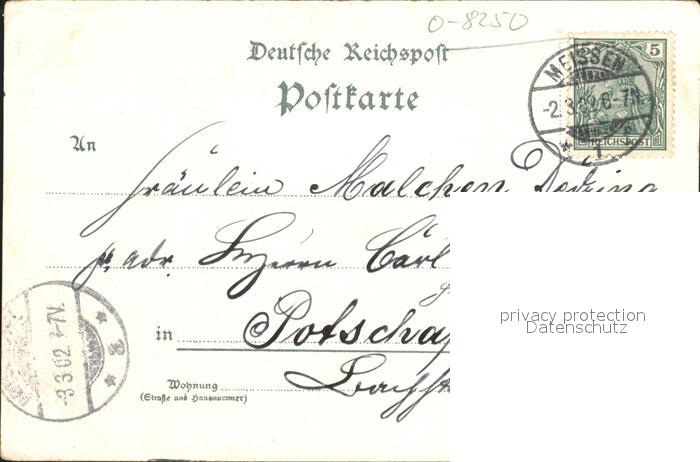 0-8250
Deutsche Reichspost
Postkarte
5
REICHSPOST
MEISSEN
-2.3.02. 6-7N.
* 1
An
Fräulein Malchen
p. adr. Herrn Carl
in Potscha
Wohnung
(Straße und Hausnummer)
-3.3.02 7-7V.
privacy protection
Datenschutz